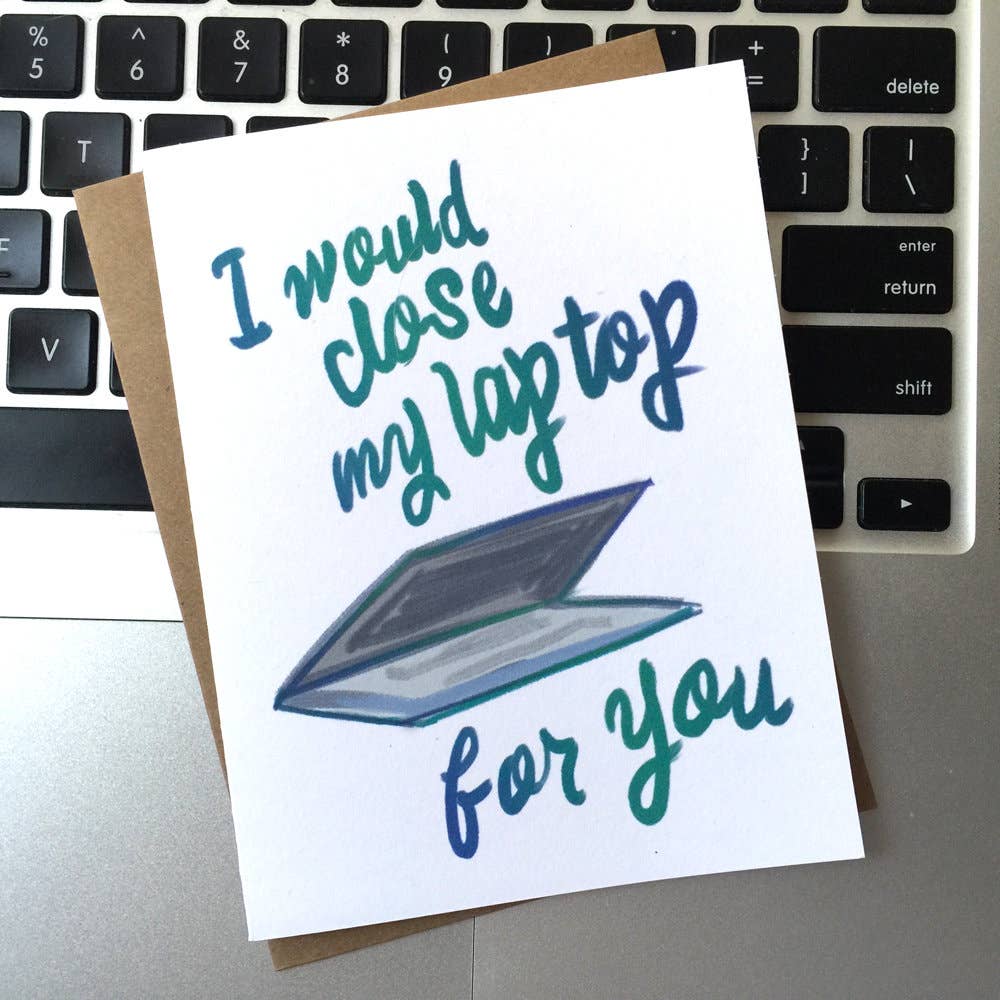 % ^ & * ( ) +
5 6 7 8 9 =
delete
T } |
] \
F
enter
return
V
shift
I would
close
my laptop
for you